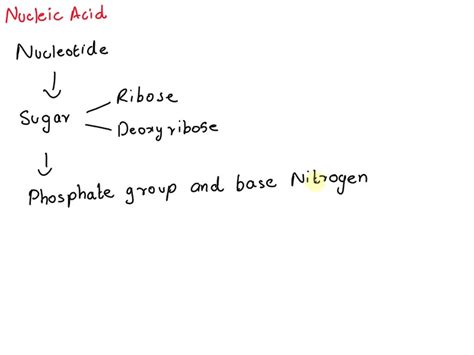 Nucleic Acid
Nucleotide
Sugar
Ribose
Deoxyribose
Phosphate group and base Nitrogen